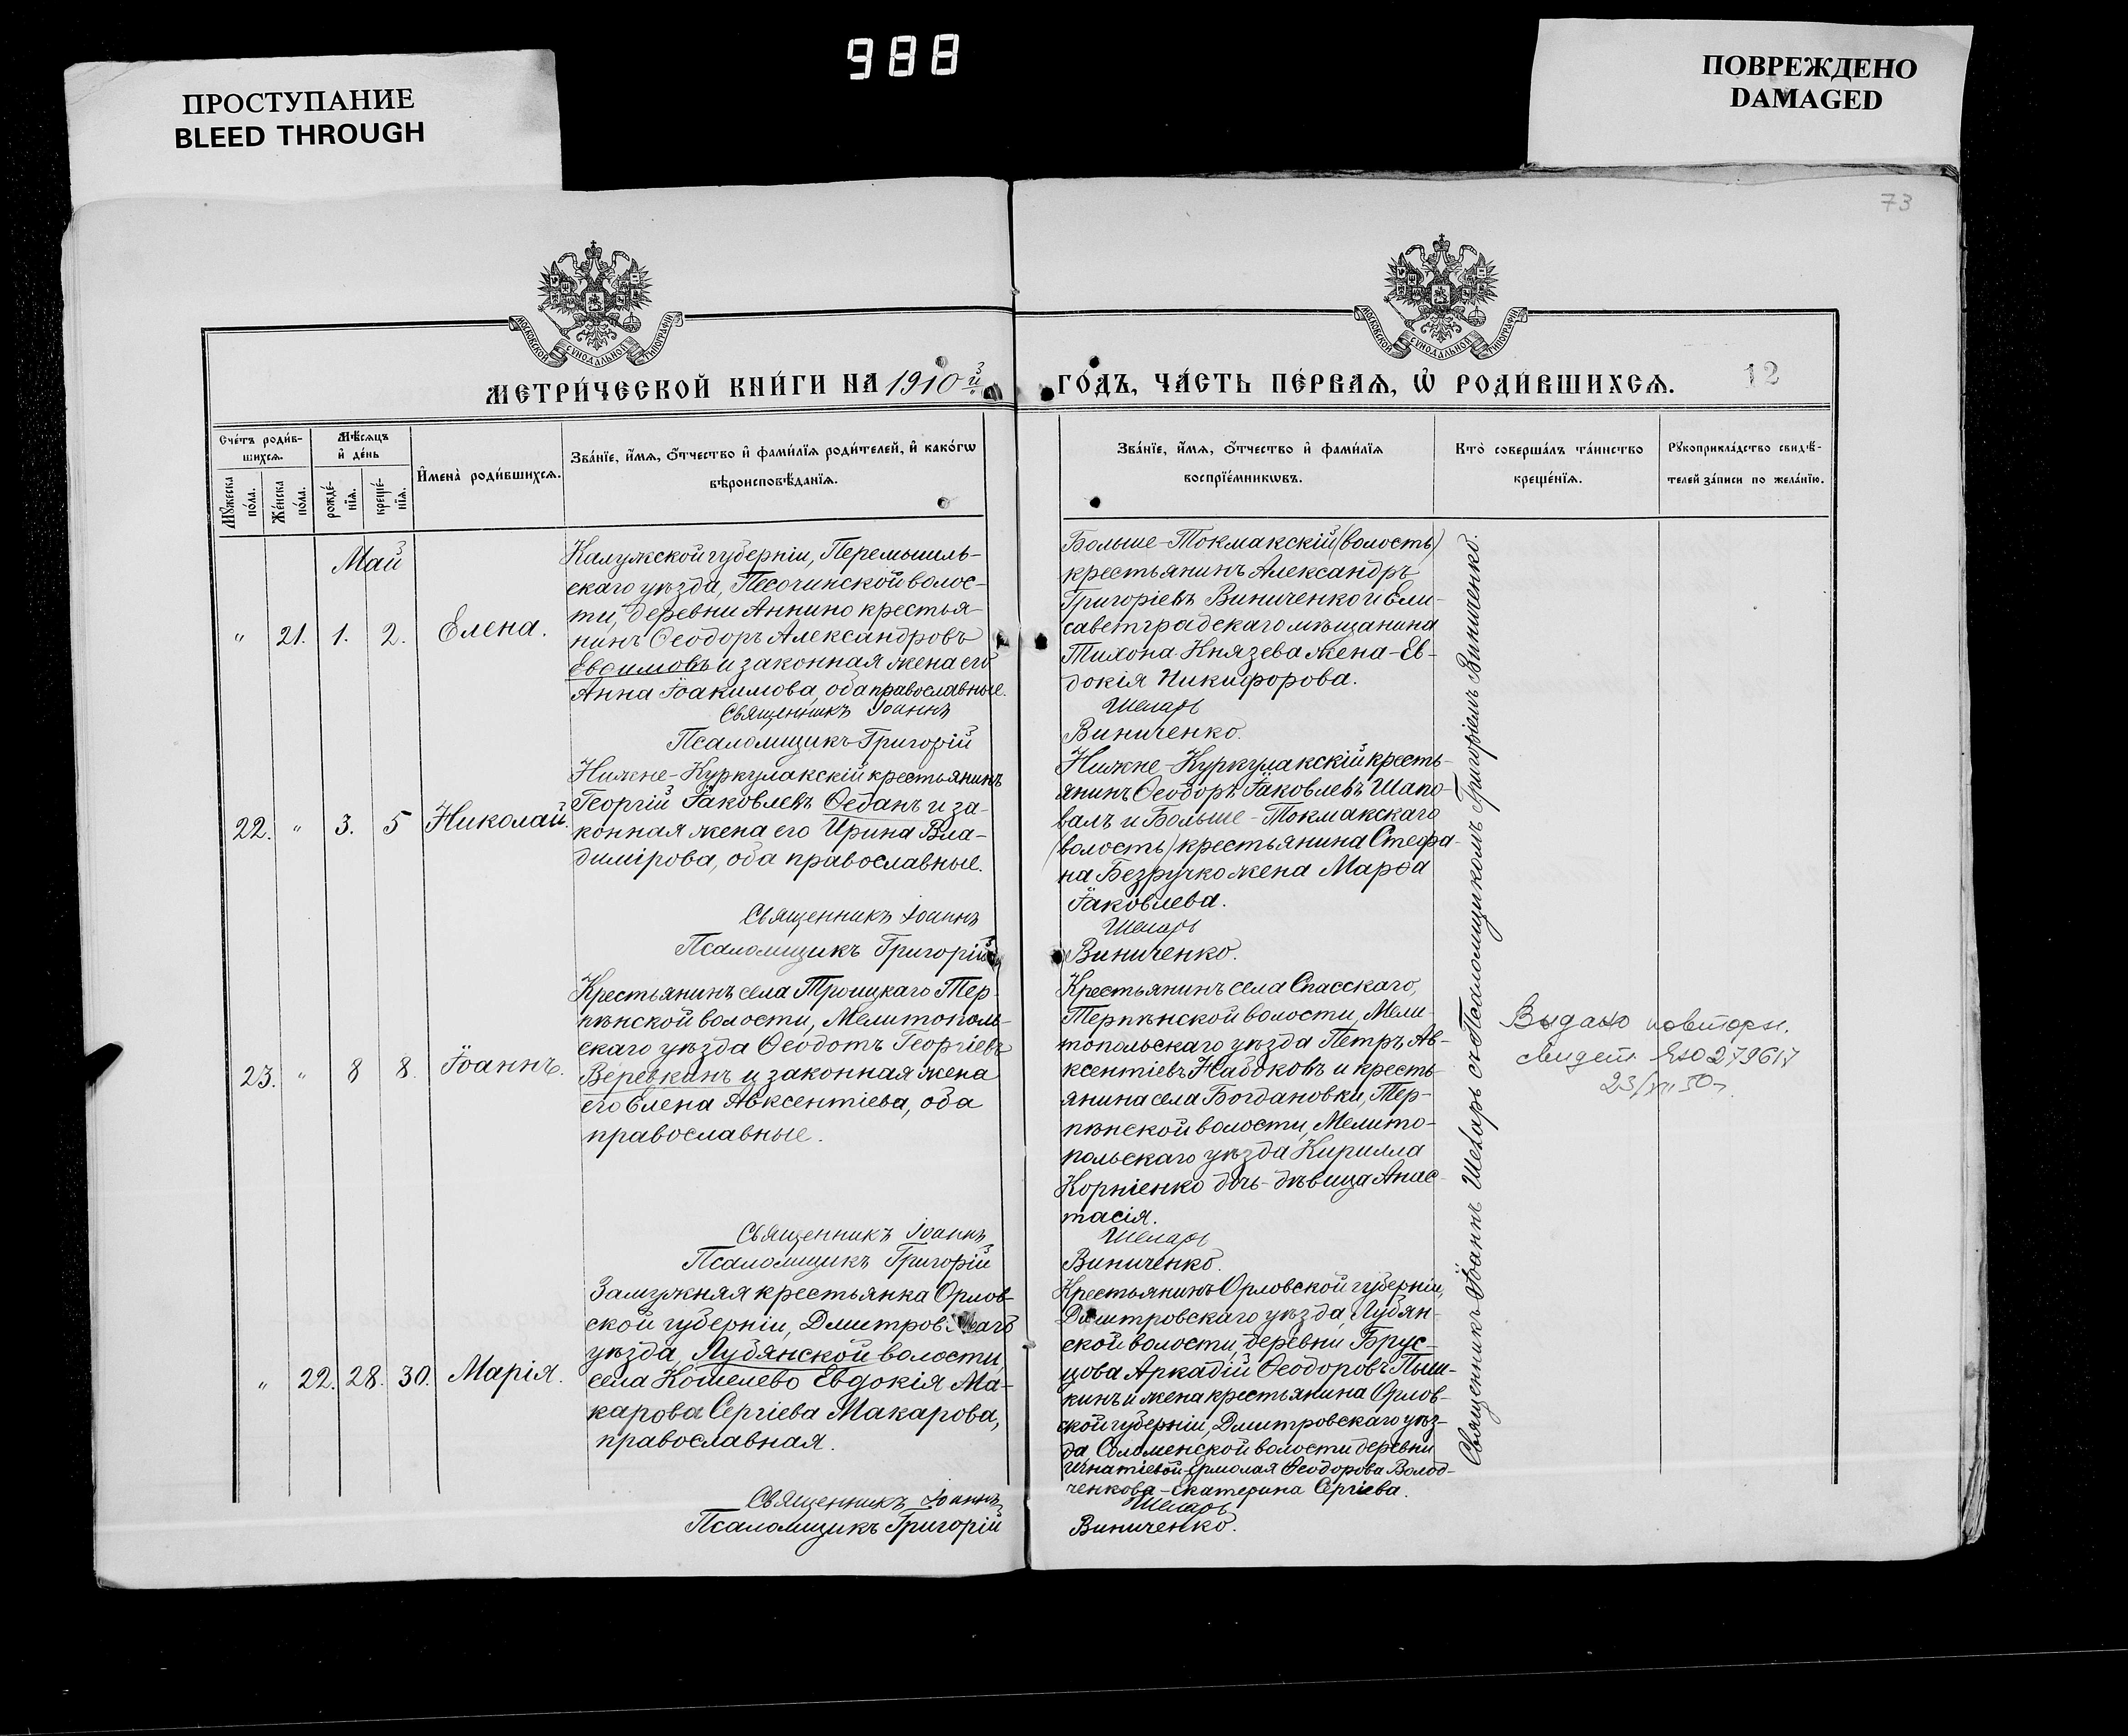 988
ПРОСТУПАНИЕ
BLEED THROUGH
ПОВРЕЖДЕНО
DAMAGED
73
МОСКОВСКОЙ СУНОДАЛЬНОЙ ТИПОГРАФІИ
МОСКОВСКОЙ СУНОДАЛЬНОЙ ТИПОГРАФІИ
МЕТРИ́ЧЕСКОЙ КНИ́ГИ НА 1910й
ГО́ДЪ, ЧА́СТЬ ПЕ́РВАѦ, Ѡ҆ РОДИ́ВШИХСѦ.
12
Сче́тъ роди́в-
шихсѧ.
Мꙋ́жеска по́ла.
Же́нска по́ла.
Мѣ́сѧцъ
и҆ де́нь
рожде́-
нїѧ.
креще́-
нїѧ.
И҆мена̀ роди́вшихсѧ.
Зва́нїе, и҆́мѧ, ѻ҆́тчество и҆ фами́лїѧ роди́телей, и҆ како́гѡ
вѣроисповѣ́данїѧ.
Зва́нїе, и҆́мѧ, ѻ҆́тчество и҆ фами́лїѧ
воспрїе́мникѡвъ.
Кто̀ соверша́лъ та́инство
креще́нїѧ.
Рꙋкоприкла́дство свидѣ́-
телей за́писи по жела́нїю.
Май
" 21. 1. 2. Елена.
Калужской губерніи, Перемышль-
скаго уѣзда, Песочинской волос-
ти, деревни Аннино крестья-
нинъ Ѳеодоръ Александровъ
Евѳимовъ и законная жена его
Анна Іоакимова, оба православные.
Священникъ Іоаннъ
Псаломщикъ Григорій
Больше-Токмакскій (волость)
крестьянинъ Александръ
Григоріевъ Виниченко и Ели-
саветградскаго мѣщанина
Тихона Князева жена-Ев-
докія Никифорова.
Шехарь
Виниченко.
22. " 3. 5 Николай.
Нижне-Куркулакскій крестьянинъ
Георгій Іаковлевъ Ѳебанъ и за-
конная жена его Ирина Вла-
димірова, оба православные.
Священникъ Іоаннъ
Псаломщикъ Григорій
Нижне-Куркулакскій кресть-
янинъ Ѳеодоръ Іаковлевъ Шапо-
валъ и Больше-Токмакскаго
(волость) крестьянина Стефа-
на Безручко жена Марѳа
Іаковлева.
Шехарь
Виниченко.
23. " 8 8. Іоаннъ.
Крестьянинъ села Троицкаго Тер-
пѣнской волости, Мелитополь-
скаго уѣзда Ѳеодотъ Георгіевъ
Веревкинъ и законная жена
его Елена Авксентіева, оба
православные.
Священникъ Іоаннъ
Псаломщикъ Григорій
Крестьянинъ села Спасскаго,
Терпѣнской волости, Мели-
топольскаго уѣзда Петръ Ав-
ксентіевъ Набоковъ и кресть-
янина села Богдановки, Тер-
пѣнской волости, Мелито-
польскаго уѣзда Кирилла
Корніенко дочь-дѣвица Анас-
тасія.
Шехарь
Виниченко.
" 22. 28. 30. Марія.
Замужняя крестьянка Орлов-
ской губерніи, Дмитровскаго
уѣзда, Лубянской волости,
села Кошелево Евдокія Ма-
карова Сергіева Макарова,
православная.
Священникъ Іоаннъ
Псаломщикъ Григорій
Крестьянинъ Орловской губерніи,
Дмитровскаго уѣзда, Лубян-
ской волости, деревни Брус-
цова Аркадій Ѳеодоровъ Пыш-
кинъ и жена крестьянина Орлов-
ской губерніи, Дмитровскаго уѣз-
да Соломенской волости деревни
Игнатіевой Ермолая Ѳеодорова Волод-
ченкова-Екатерина Сергіева.
Шехарь
Виниченко.
Священникъ Іоаннъ Шехарь съ Псаломщикомъ Григоріемъ Виниченко.
Выдано повторн.
свидет. 279617
23/XII 50 г.